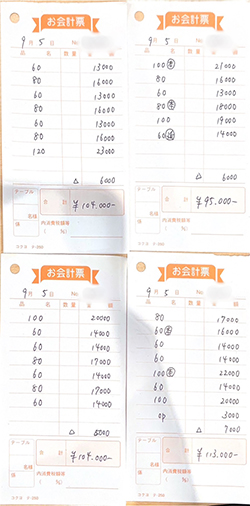 お会計票
9月 5日 No.
品 名 数量 金 額
60 13000
80 16000
60 13000
80 16000
60 13000
80 16000
120 23000
△ 6000
テーブル
合 計 ¥104.000-
名様
係
内消費税額等
( %)
お会計票
9月 5日 No.
品 名 数量 金 額
100 21000
80 16000
60 13000
80 18000
100 19000
60 14000
△ 6000
テーブル
合 計 ¥95.000-
名様
係
内消費税額等
( %)
お会計票
9月 5日 No.
品 名 数量 金 額
100 20000
60 14000
60 14000
80 17000
60 14000
80 17000
60 14000
△ 6000
テーブル
合 計 ¥104.000-
名様
係
内消費税額等
( %)
お会計票
9月 5日 No.
品 名 数量 金 額
80 17000
60 16000
60 14000
60 14000
100 22000
60 14000
100 20000
op 3000
△ 7000
テーブル
合 計 ¥113.000-
名様
係
内消費税額等
( %)